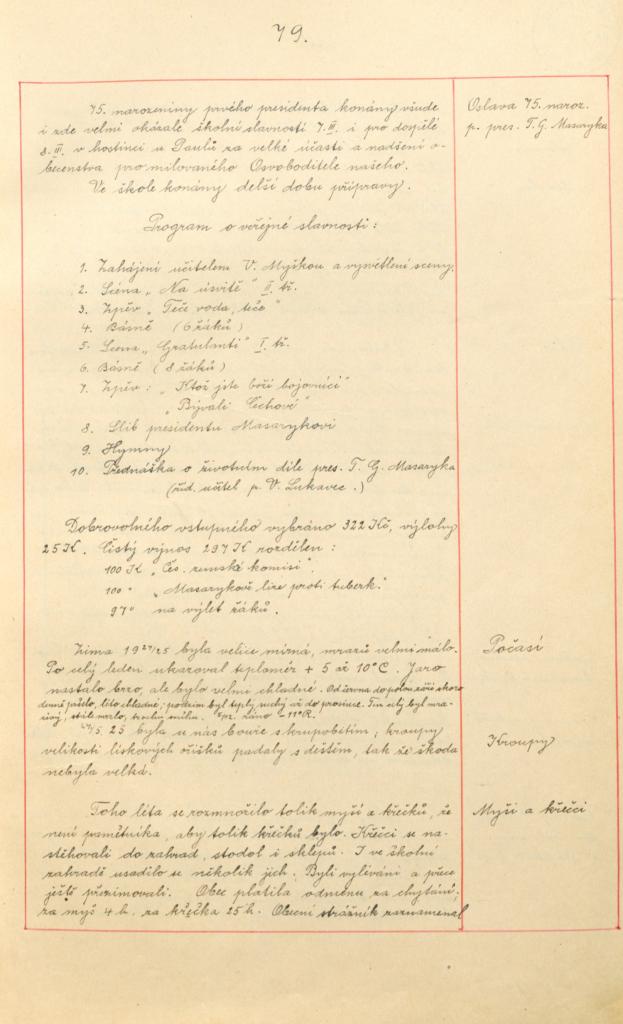 79.
75. narozeniny prvého presidenta konány všude
i zde velmi okázale školní slavností 7. III. i pro dospělé
8. III. v hostinci u Paulů za velké účasti a nadšení o-
becenstva pro milovaného Osvoboditele našeho.
Ve škole konány delší dobu přípravy.
Oslava 75. naroz.
p. pres. T. G. Masaryka
Program o veřejné slavnosti:
1. Zahájení učitelem V. Myškou a vysvětlení sceny.
2. Scéna „Na úsvitě" II. tř.
3. Zpěv „Teče voda, teče"
4. Básně (6 žáků)
5. Scena „Gratulanti" I. tř.
6. Básně (8 žáků)
7. Zpěv: „Ktož jste boží bojovníci"
„Bývali Čechové"
8. Slib presidentu Masarykovi
9. Hymny
10. Přednáška o životním díle pres. T. G. Masaryka
(říd. učitel p. V. Lukavec.)
Dobrovolného vstupného vybráno 322 Kč, výlohy
25 K. Čistý výnos 297 K rozdělen:
100 K „Čes. zemské komisi".
100 " „Masarykově lize proti tuberk."
97 " na výlet žáků.
Zima 1924/25 byla velice mírná, mrazů velmi málo.
Po celý leden ukazoval teploměr + 5 až 10° C. Jaro
nastalo brzo, ale bylo velmi chladné. Od června do polov. září skoro
denně pršelo, léto chladné; podzim byl teplý, suchý až do prosince. Ten celý byl mra-
zivý, stále mrzlo, trochu sněhu. ráno -11° R.
5. 25 byla u nás bouře s krupobitím; kroupy
velikosti lískových oříšků padaly s deštěm, tak že škoda
nebyla velká.
Počasí
Kroupy
Toho léta se rozmnožilo tolik myší a křečků, že
není pamětníka, aby tolik křečků bylo. Křečci se na-
stěhovali do zahrad, stodol i sklepů. I ve školní
zahradě usadilo se několik jich. Byli vyléváni a přece
ještě přezimovali. Obec platila odměnu za chytání;
za myš 4 h. za křečka 25 h. Obecní strážník zaznamenal
Myši a křečci